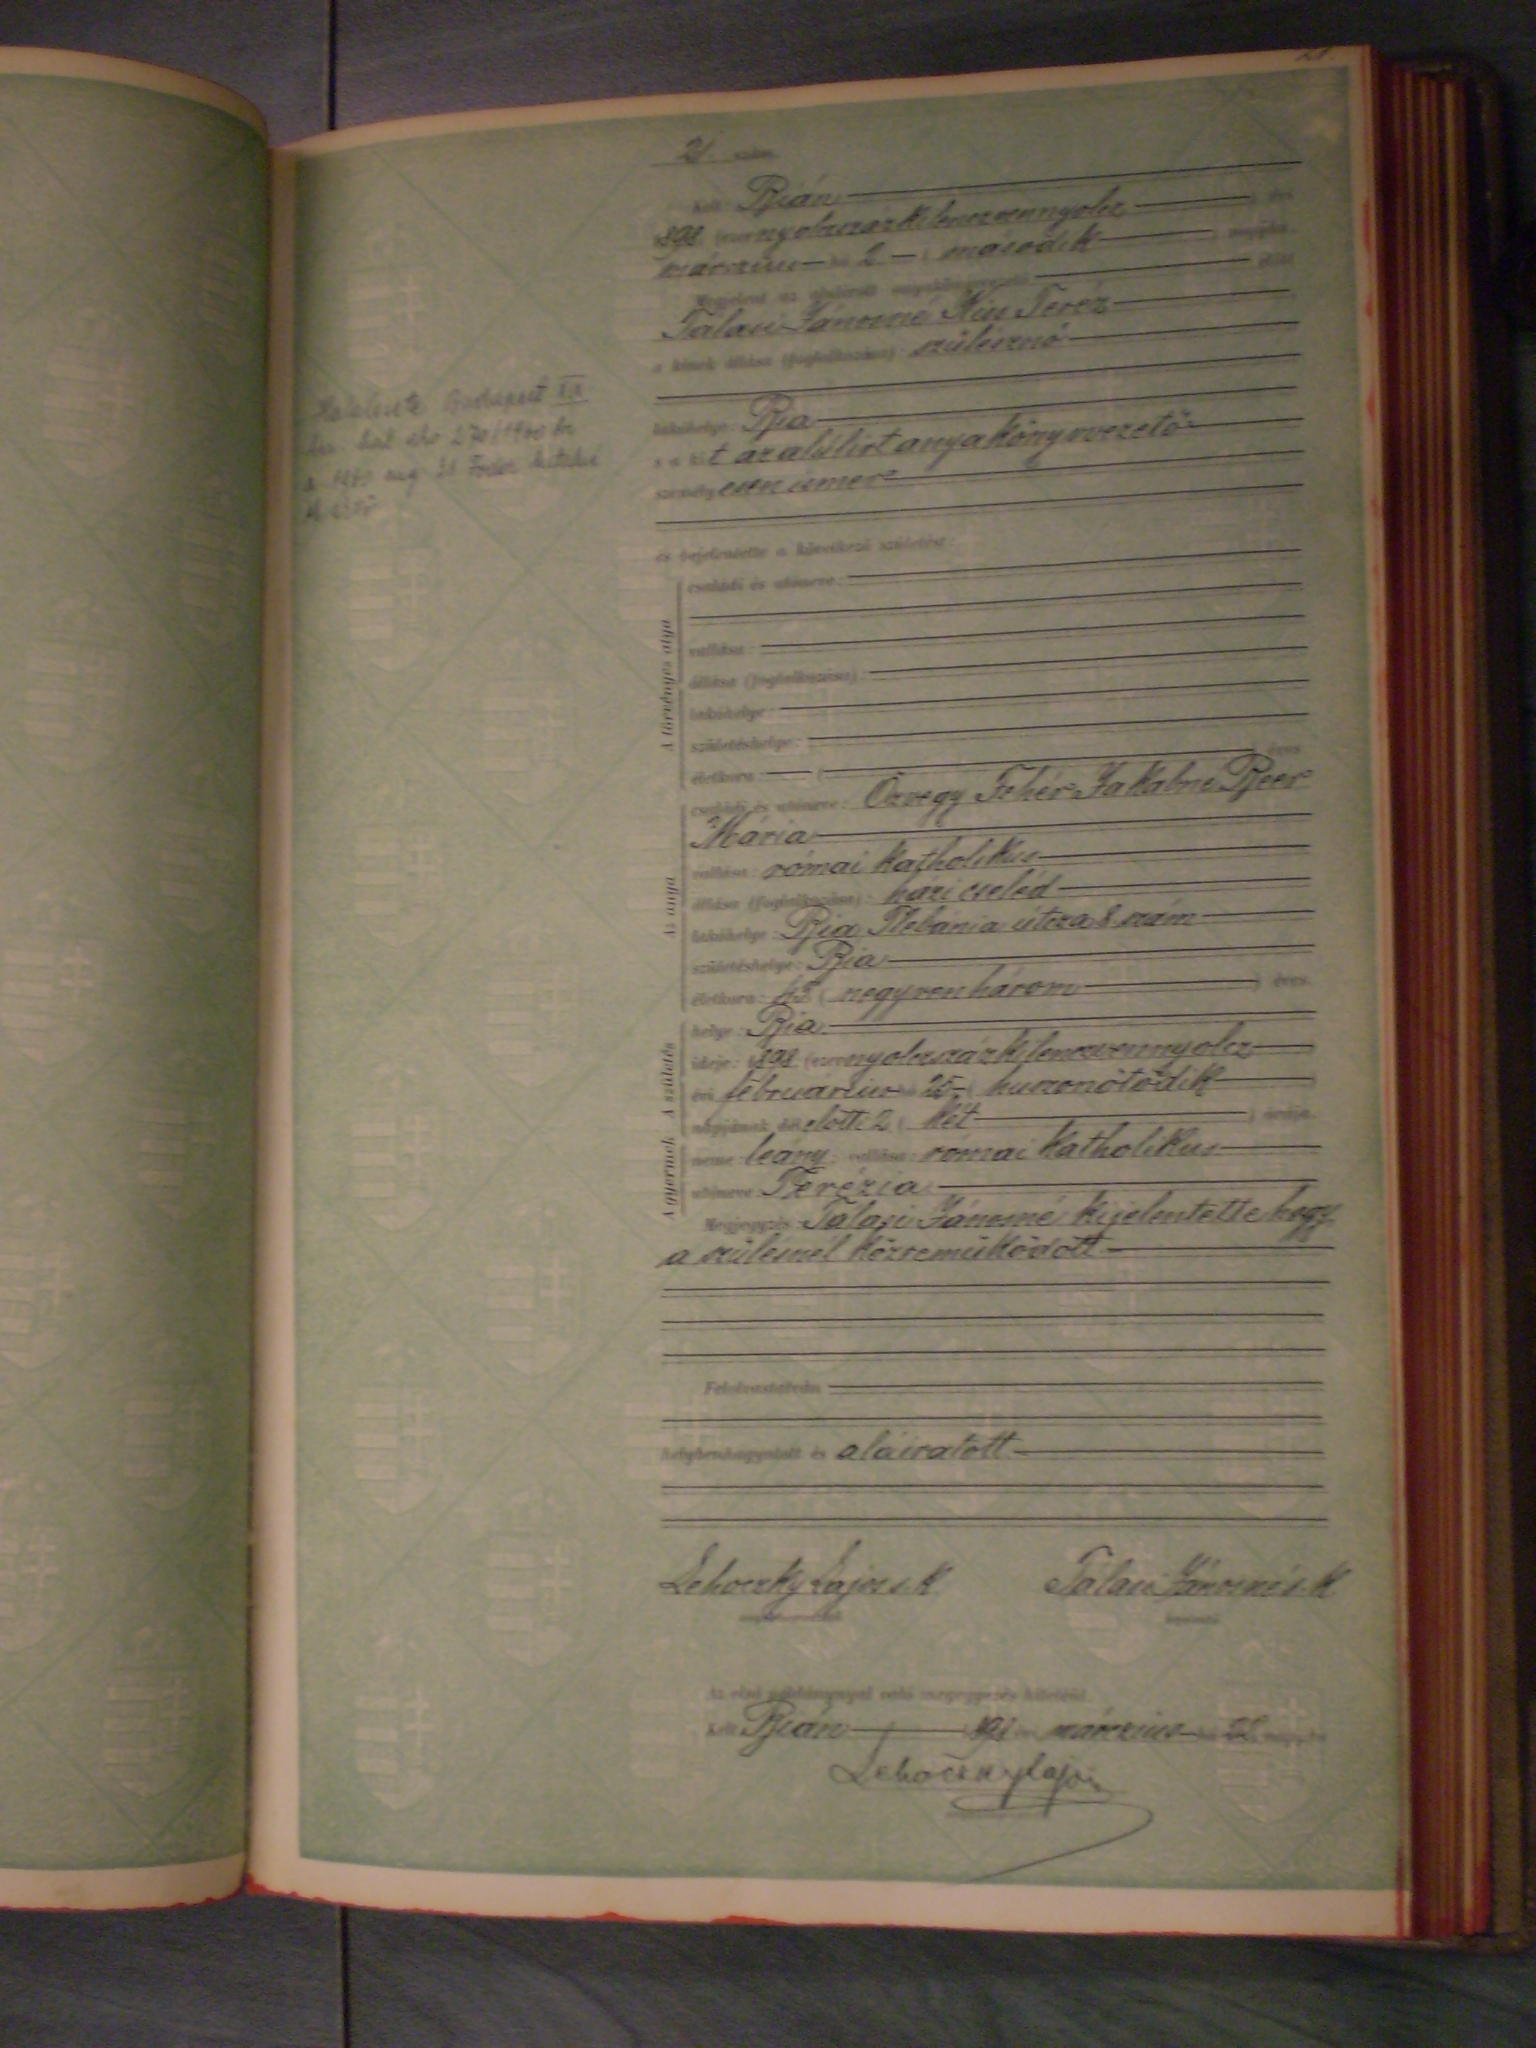 21. szám.
Kelt Bián
1898. (ezer nyolczszázkilenczvennyolcz) évi
márczius hó 2. (második) napján.
Megjelent az alulírott anyakönyvvezető előtt
Tálasi Jánosné Kiss Teréz
a kinek állása (foglalkozása): szülésznő
lakóhelye: Bia
s a kit az alólirt anyakönyvvezető
személyesen ismer
és bejelentette a következő születést:
A törvényes atya
családi és utóneve:
vallása:
állása (foglalkozása):
lakóhelye:
születéshelye:
életkora: ( ) éves
Az anya
családi és utóneve: Özvegy Fehér Jakabné
Mária
vallása: római katholikus
állása (foglalkozása): házi cseléd
lakóhelye: Bia Plebánia útcza 8 szám
születéshelye: Bia
életkora: 43 (negyvenhárom) éves.
A születés
helye: Bia
ideje: 1898. (ezer nyolczszázkilenczvennyolcz)
évi februárius hó 25 (huszonötödik)
napjának dél előtti 2 (két) órája.
A gyermek
neme: leány; vallása: római katholikus
utóneve: Terézia
Megjegyzés: Tálasi Jánosné kijelentette hogy
a szülésnél közreműködött
Felolvastatván
helybenhagyatott és aláiratott
Lehoczky Lajos s.k. Tálasi Jánosné s.k.
anyakönyvvezető bejelentő
Az első példánynyal való megegyezés hiteléül.
Kelt Bián 1898 évi márczius hó napján
Lehoczky Lajos